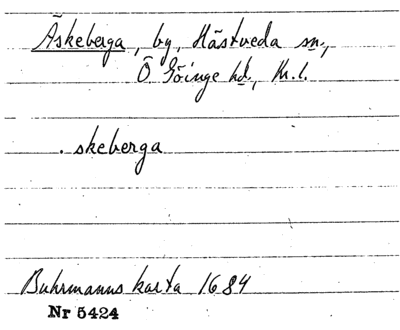 Äskeberga, by, Hästveda sn,
Ö. Göinge hd, Kr. l.
. skeberga
Buhrmanns karta 1684
Nr 5424